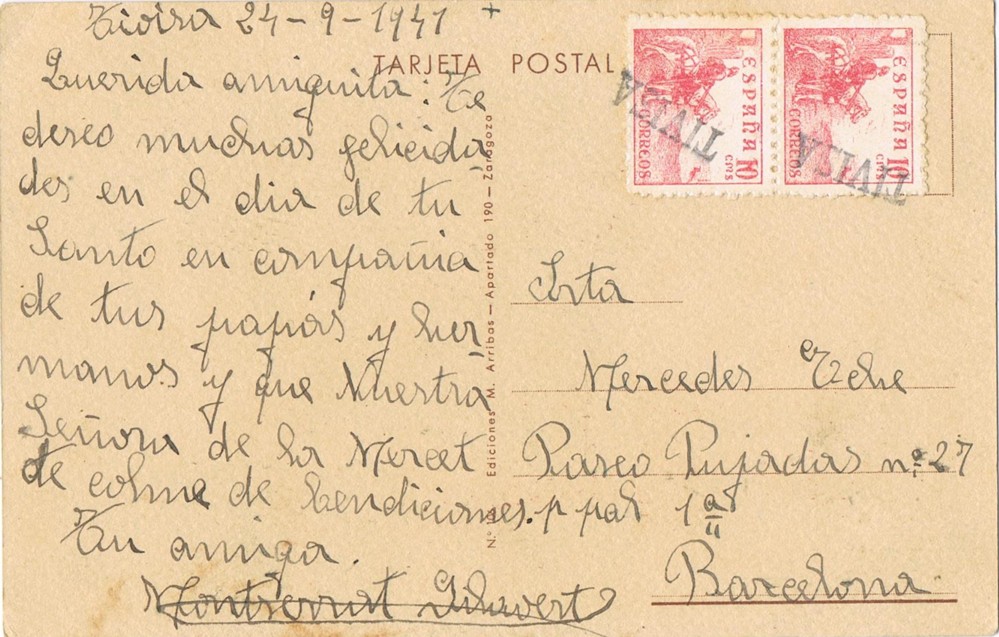 Tivisa 24-9-1941 +
Querida amiguita: Te
deseo muchas felicida
des en el dia de tu
Santo en compañia
de tus papás y her
manos y que Nuestra
Señora de la Mercet
te colme de bendiciones.
Tu amiga.
Montserrat
TARJETA POSTAL
Nº
Ediciones M. Arribas — Apartado 190 — Zaragoza
ESPAÑA 10 CTOS CORREOS
ESPAÑA 10 CTOS CORREOS
TIVISA
TIVISA
Srta
Mercedes
Paseo Pujadas nº 27
p pal 1ª
Barcelona